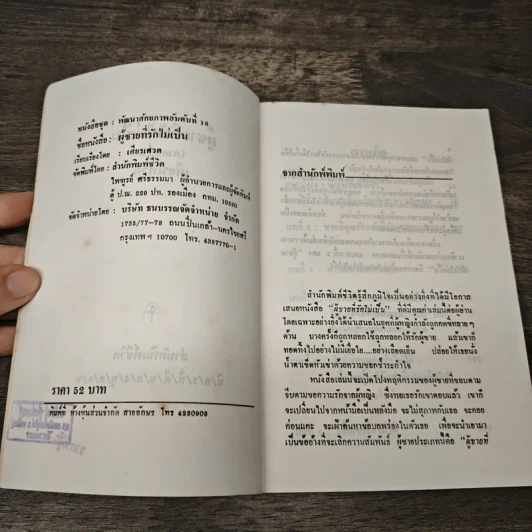 หนังสือชุด : พัฒนาศักยภาพอันดับที่ 18
ชื่อหนังสือ : ผู้ชายที่รักไม่เป็น
เรียบเรียงโดย : เศียรเศวต
จัดพิมพ์โดย : สำนักพิมพ์ชีวิต
ไพฑูรย์ ศรีธรรมมา ผู้อำนวยการและผู้จัดพิมพ์
ตู้ ป.ณ. 229 ปท. รองเมือง กทม. 10330
จัดจำหน่ายโดย : บริษัท ธนบรรณจัดจำหน่าย จำกัด
1755/77-78 ถนนปิ่นเกล้า-นครไชยศรี
กรุงเทพฯ 10700 โทร. 4337770-1
ราคา 52 บาท
พิมพ์ที่ ห้างหุ้นส่วนจำกัด สายอักษร โทร 4280908
จากสำนักพิมพ์
สำนักพิมพ์ชีวิตรู้สึกภูมิใจเป็นอย่างยิ่งที่ได้มีโอกาส
เสนอหนังสือ "ผู้ชายที่รักไม่เป็น" ที่มีคุณค่าเล่มนี้ต่อผู้อ่าน
โดยเฉพาะอย่างยิ่งได้นำเสนอในยุคที่ผู้หญิงกำลังถูกกดขี่หลาย ๆ
ด้าน บางครั้งก็ถูกหลอกใช้ถูกหลอกให้รักผู้ชาย แล้วเขาก็
ทอดทิ้งไปอย่างไม่เยื่อใย....อย่างเลือดเย็น ปล่อยให้เธอนั่ง
น้ำตาเช็ดหัวเข่าด้วยความชอกช้ำระกำใจ
หนังสือเล่มนี้จะเปิดโปงพฤติกรรมของผู้ชายที่ชอบตาม
จีบตามขอความรักจากผู้หญิง ซึ่งพอเธอรักเขาตอบแล้ว เขาก็
จะเปลี่ยนไปจากหน้ามือเป็นหลังมือ จะไม่สุภาพกับเธอ จะคอย
ค่อนแคะ จะเฝ้าค้นหาข้อบกพร่องในตัวเธอ เพื่อจะนำเอามา
เป็นข้ออ้างที่จะเลิกความสัมพันธ์ ผู้ชายประเภทนี้คือ "ผู้ชายที่